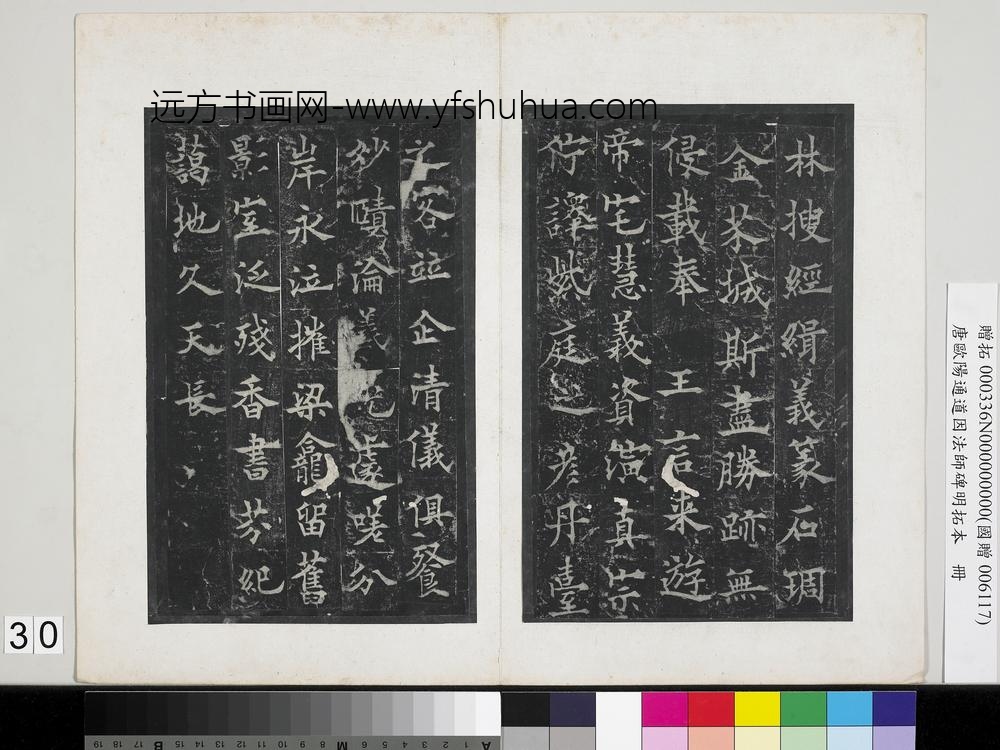 远方书画网-www.yfshuhua.com
林搜經緝義篆石琱
金茶城斯盡勝跡無
侵載奉王言来遊
帝宅慧義資演真宗
佇譯紫庭彦丹臺
之客竝企清儀俱餐
妙賾淪義虚嗟分
岸永泣摧梁龕留舊
影室泛殘香書芬紀
藹地久天長
贈拓 000336N000000000(國贈 006117)
唐歐陽通道因法師碑明拓本 冊
30
19 18 17 16 15 B 12 11 10 9 8 M 6 5 4 3 2 1 A